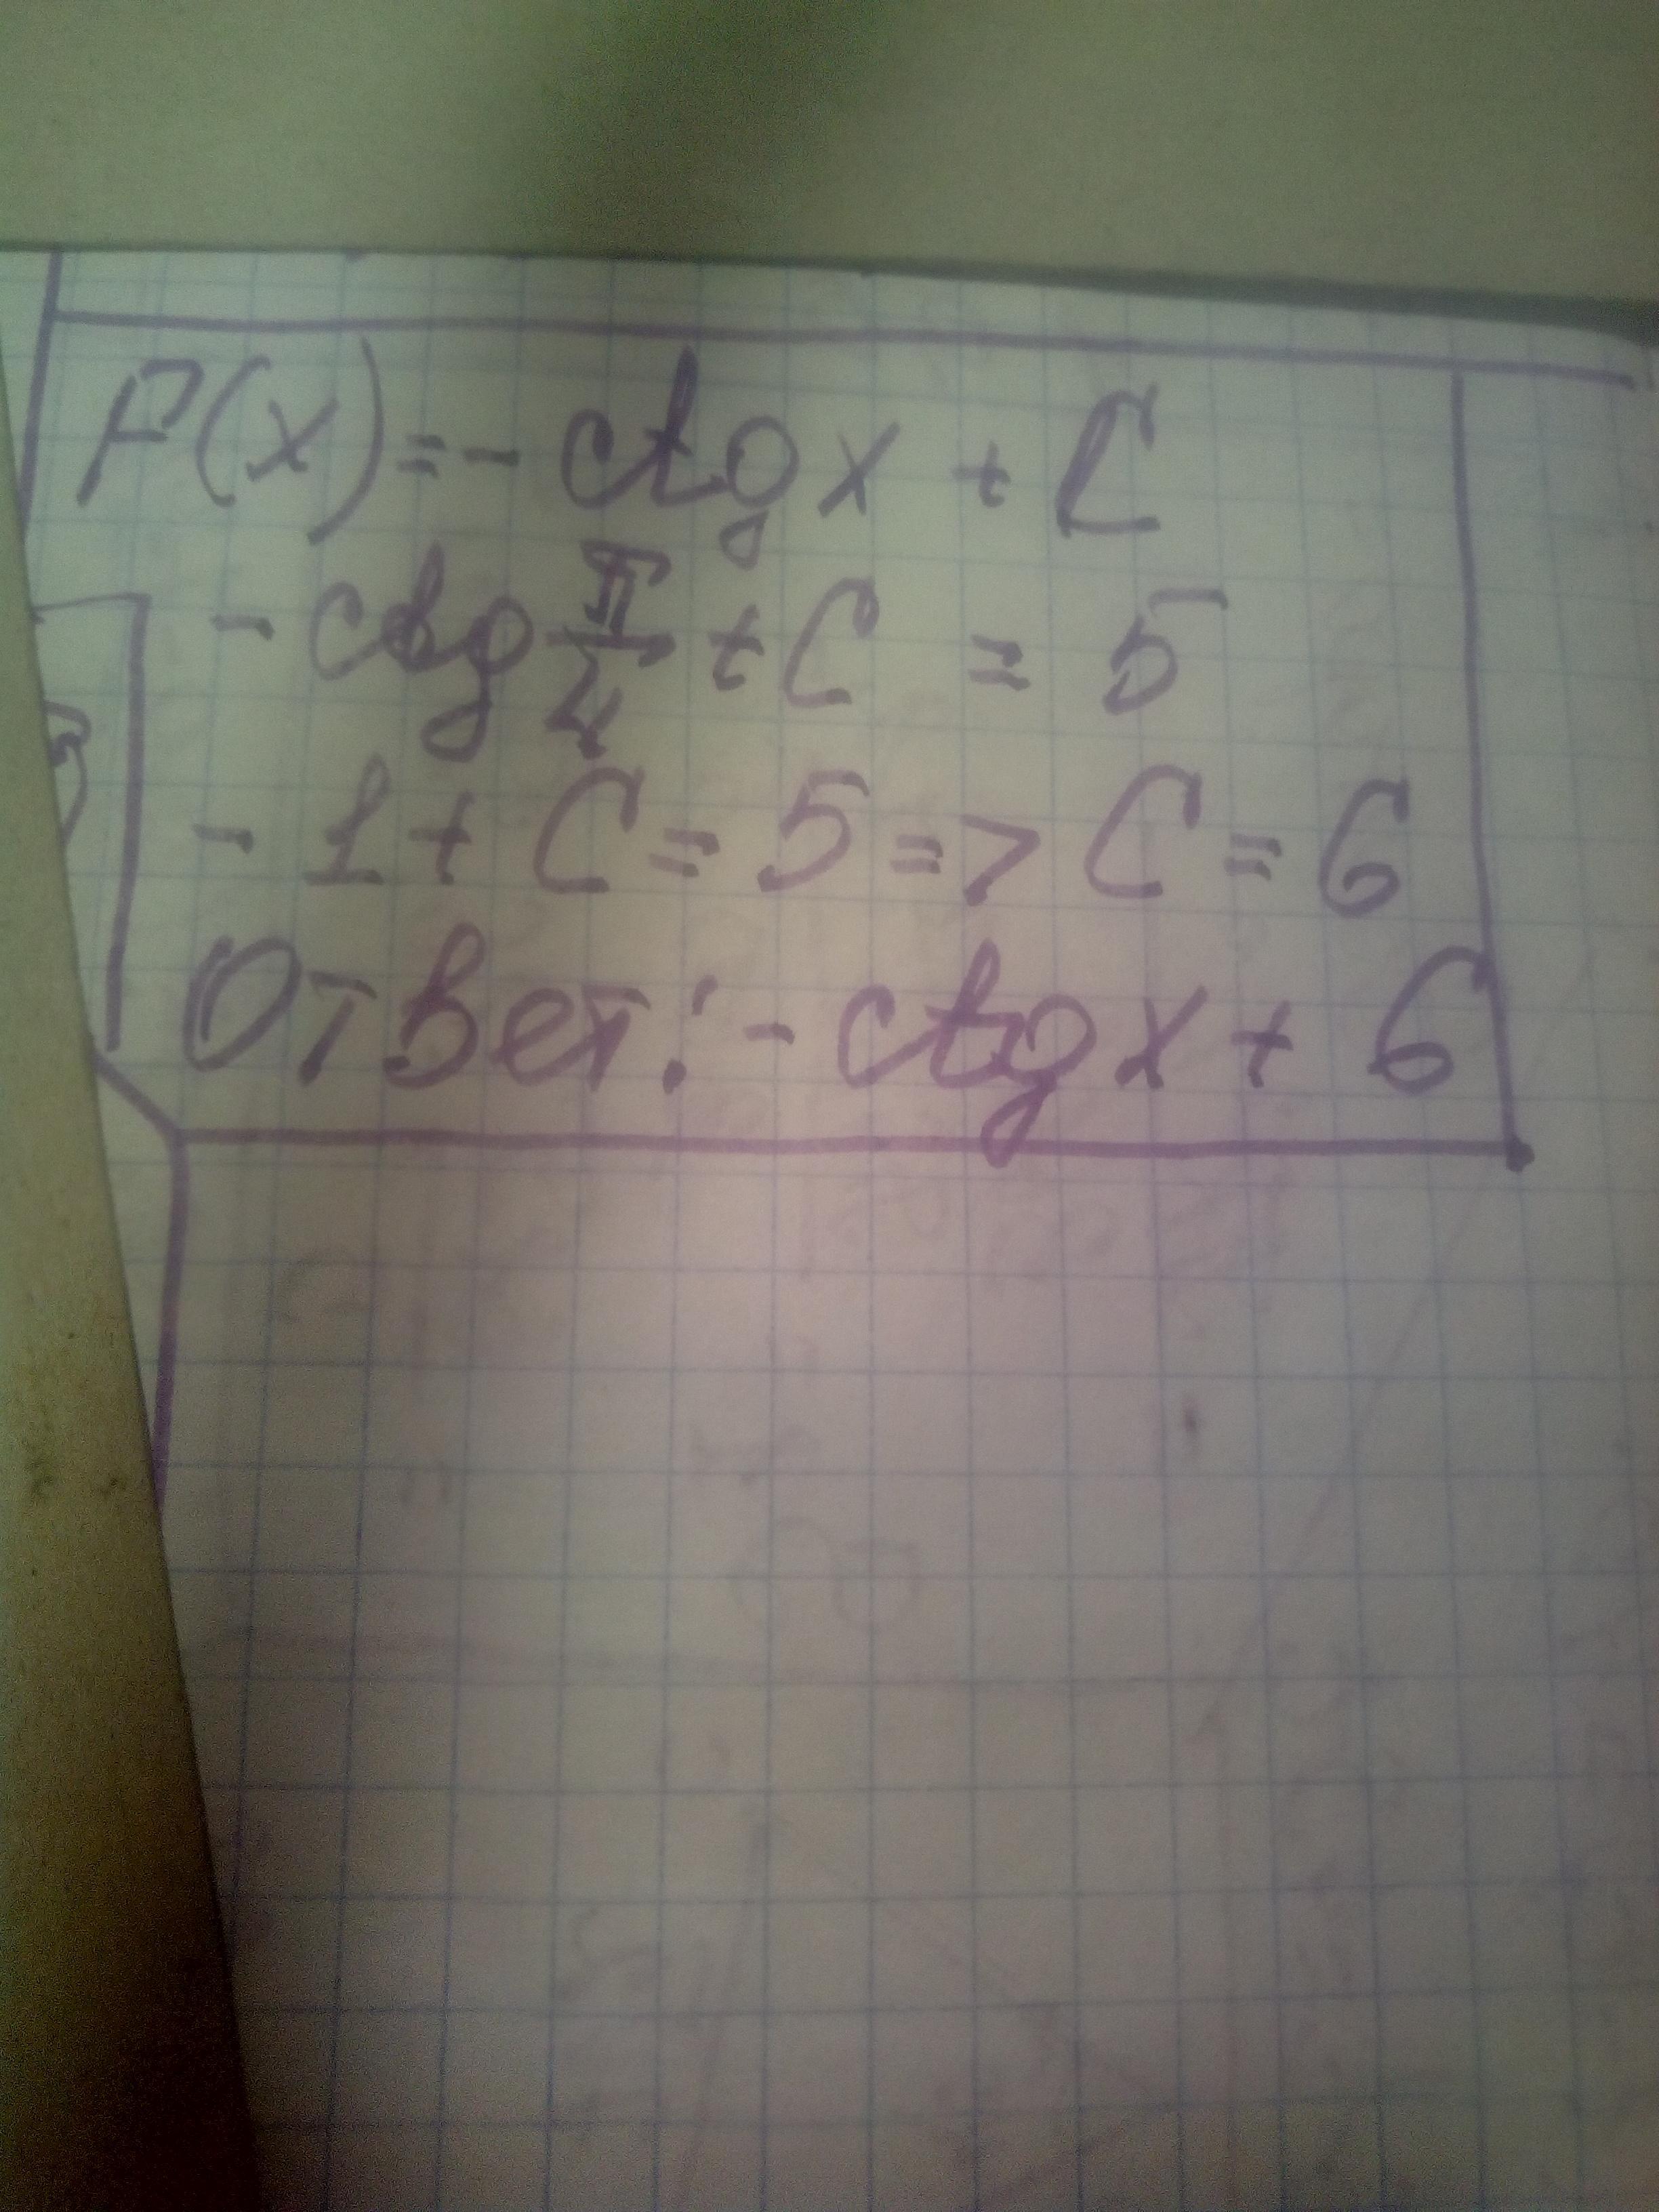 F(x)=-ctgx+C
-ctg π/4 + C = 5
-1+C=5=>C=6
Ответ: -ctgx+6